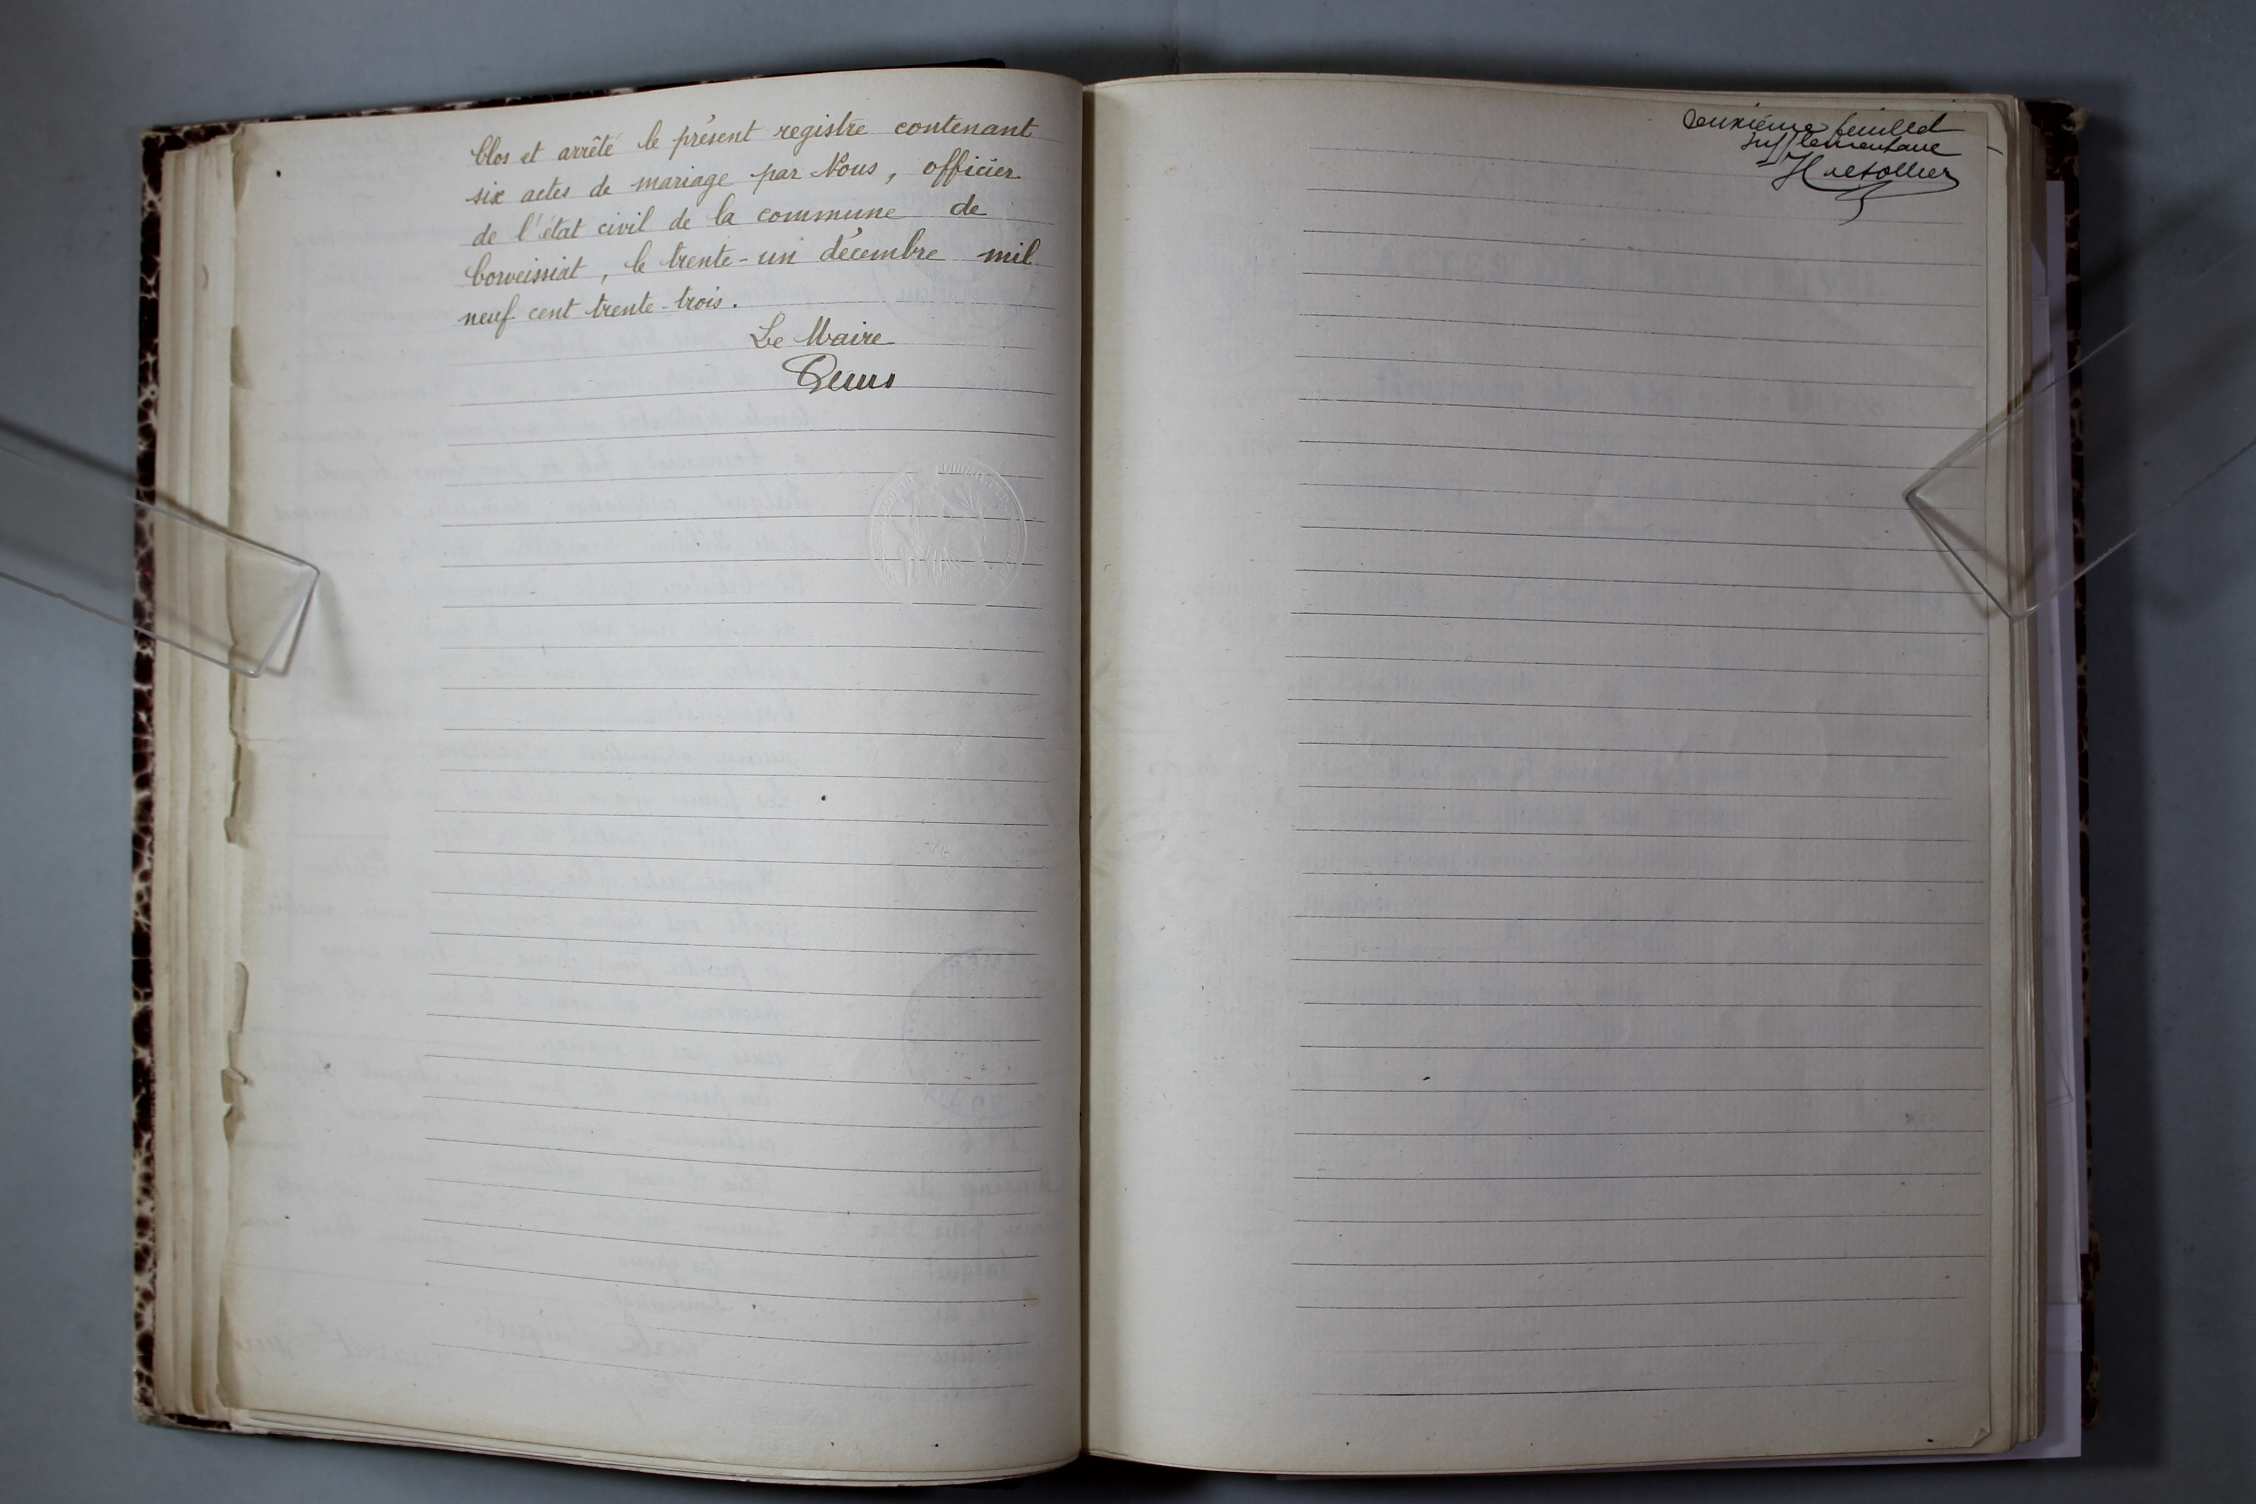 Clos et arrêté le présent registre contenant
six actes de mariage par Nous, officier
de l'état civil de la commune de
Corveissiat, le trente-un décembre mil
neuf cent trente-trois.
Le Maire
Deuxième feuillet
supplémentaire